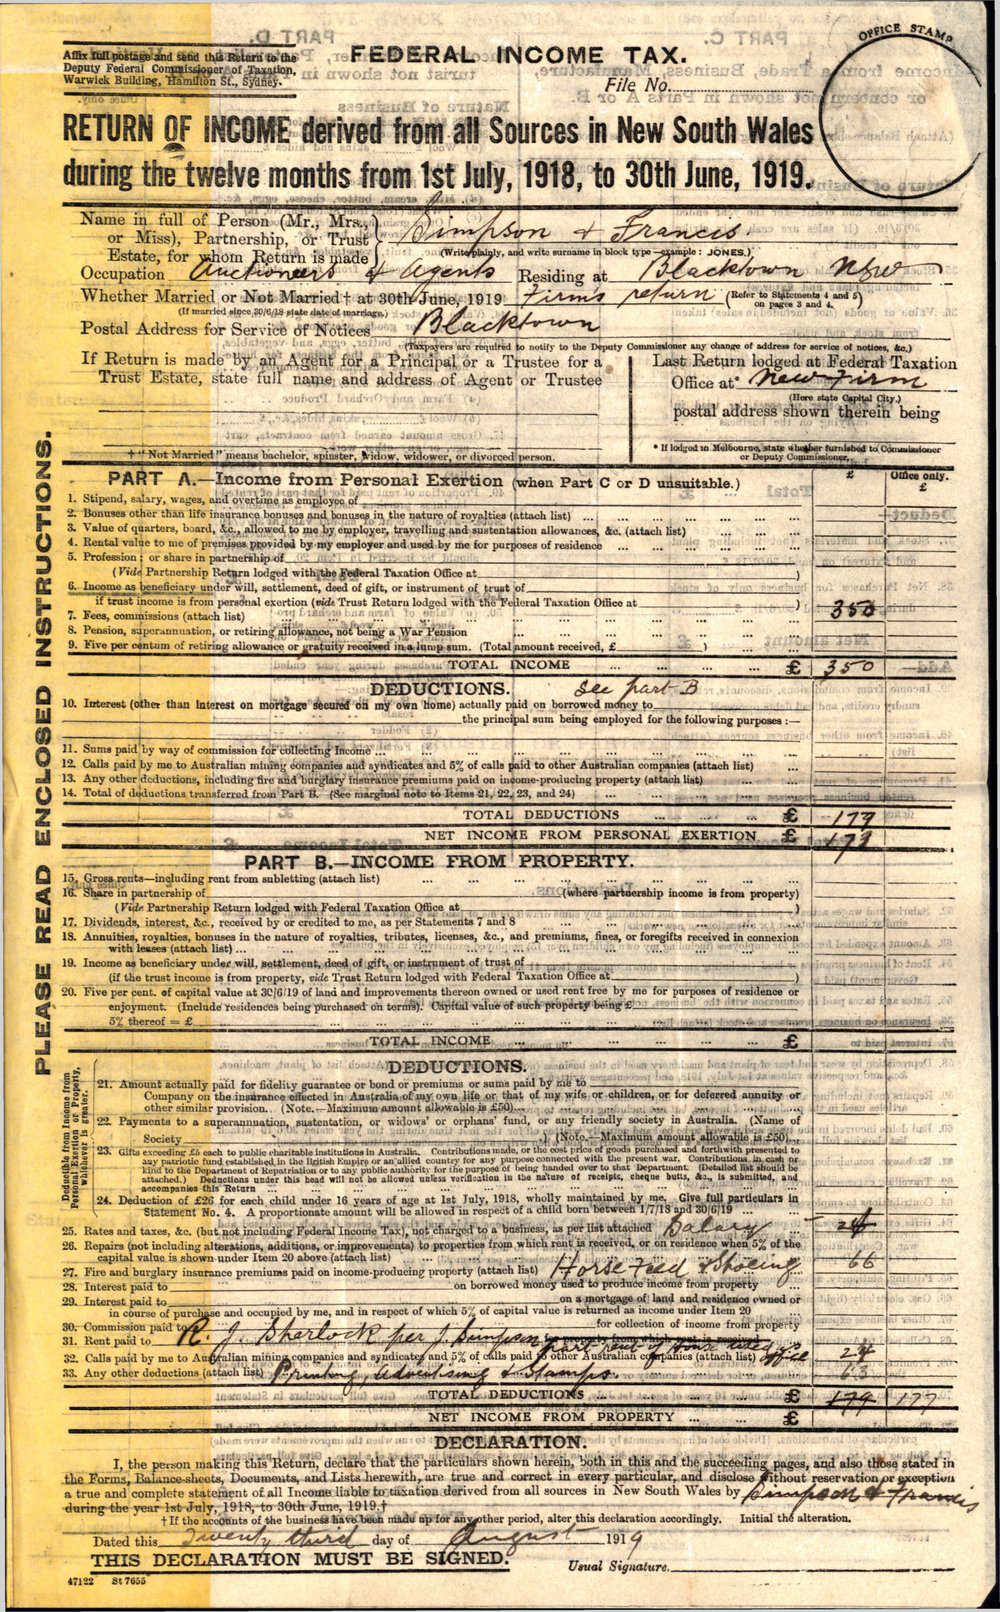 Affix full postage and send this Return to the
Deputy Federal Commissioner of Taxation,
Warwick Building, Hamilton St., Sydney.
FEDERAL INCOME TAX.
File No.
OFFICE STAMP
RETURN OF INCOME derived from all Sources in New South Wales
during the twelve months from 1st July, 1918, to 30th June, 1919.
Name in full of Person (Mr., Mrs., or Miss), Partnership, or Trust Estate, for whom Return is made } Simpson & Francis
(Write plainly, and write surname in block type—example: JONES.)
Occupation Auctioneers & Agents Residing at Blacktown NSW
Whether Married or Not Married† at 30th June, 1919 Firm's return (Refer to Statements 4 and 5) on pages 3 and 4.
(If married since 30/6/18 state date of marriage.)
Postal Address for Service of Notices Blacktown
(Taxpayers are required to notify to the Deputy Commissioner any change of address for service of notices, &c.)
If Return is made by an Agent for a Principal or a Trustee for a
Trust Estate, state full name and address of Agent or Trustee
† "Not Married" means bachelor, spinster, widow, widower, or divorced person.
Last Return lodged at Federal Taxation
Office at* New Firm
(Here state Capital City.)
postal address shown therein being
* If lodged in Melbourne, state whether furnished to Commissioner
or Deputy Commissioner.
PLEASE READ ENCLOSED INSTRUCTIONS.
PART A.—Income from Personal Exertion (when Part C or D unsuitable.) £ Office only. £
1. Stipend, salary, wages, and overtime as employee of
2. Bonuses other than life insurance bonuses and bonuses in the nature of royalties (attach list)
3. Value of quarters, board, &c., allowed to me by employer, travelling and sustentation allowances, &c. (attach list)
4. Rental value to me of premises provided by my employer and used by me for purposes of residence
5. Profession; or share in partnership of
(Vide Partnership Return lodged with the Federal Taxation Office at )
6. Income as beneficiary under will, settlement, deed of gift, or instrument of trust of
if trust income is from personal exertion (vide Trust Return lodged with the Federal Taxation Office at )
7. Fees, commissions (attach list) 350
8. Pension, superannuation, or retiring allowance, not being a War Pension
9. Five per centum of retiring allowance or gratuity received in a lump sum. (Total amount received, £ )
TOTAL INCOME £ 350
DEDUCTIONS. See part B
10. Interest (other than interest on mortgage secured on my own home) actually paid on borrowed money to
the principal sum being employed for the following purposes:—
11. Sums paid by way of commission for collecting Income
12. Calls paid by me to Australian mining companies and syndicates and 5% of calls paid to other Australian companies (attach list)
13. Any other deductions, including fire and burglary insurance premiums paid on income-producing property (attach list)
14. Total of deductions transferred from Part B. (See marginal note to Items 21, 22, 23, and 24)
TOTAL DEDUCTIONS £ 179
NET INCOME FROM PERSONAL EXERTION £
PART B.—INCOME FROM PROPERTY.
15. Gross rents—including rent from subletting (attach list)
16. Share in partnership of (where partnership income is from property)
(Vide Partnership Return lodged with Federal Taxation Office at )
17. Dividends, interest, &c., received by or credited to me, as per Statements 7 and 8
18. Annuities, royalties, bonuses in the nature of royalties, tributes, licenses, &c., and premiums, fines, or foregifts received in connexion
with leases (attach list)
19. Income as beneficiary under will, settlement, deed of gift, or instrument of trust of
(if the trust income is from property, vide Trust Return lodged with Federal Taxation Office at )
20. Five per cent. of capital value at 30/6/19 of land and improvements thereon owned or used rent free by me for purposes of residence or
enjoyment. (Include residences being purchased on terms). Capital value of such property being £
5% thereof = £
TOTAL INCOME £
DEDUCTIONS.
Deductible from Income from Personal Exertion or Property, whichever is greater.
21. Amount actually paid for fidelity guarantee or bond or premiums or sums paid by me to
Company on the insurance effected in Australia of my own life or that of my wife or children, or for deferred annuity or
other similar provision. (Note.—Maximum amount allowable is £50)
22. Payments to a superannuation, sustentation, or widows' or orphans' fund, or any friendly society in Australia. (Name of
Society ) (Note.—Maximum amount allowable is £50)
23. Gifts exceeding £5 each to public charitable institutions in Australia. Contributions made, or the cost price of goods purchased and forthwith presented to
any patriotic fund established in the British Empire or an allied country for any purpose connected with the present war. Contributions in cash or
kind to the Department of Repatriation or to any public authority for the purpose of being handed over to that Department. (Detailed list should be
attached.) Deductions under this head will not be allowed unless verification in the nature of receipts, cheque butts, &c., is submitted, and
accompanies this Return
24. Deduction of £26 for each child under 16 years of age at 1st July, 1918, wholly maintained by me. Give full particulars in
Statement No. 4. A proportionate amount will be allowed in respect of a child born between 1/7/18 and 30/6/19
25. Rates and taxes, &c. (but not including Federal Income Tax), not charged to a business, as per list attached Salary
26. Repairs (not including alterations, additions, or improvements) to properties from which rent is received, or on residence when 5% of the
capital value is shown under Item 20 above (attach list) 66
27. Fire and burglary insurance premiums paid on income-producing property (attach list) Horse Feed & Shoeing
28. Interest paid to on borrowed money used to produce income from property
29. Interest paid to on a mortgage of land and residence owned or
in course of purchase and occupied by me, and in respect of which 5% of capital value is returned as income under Item 20
30. Commission paid to for collection of income from property
31. Rent paid to R. J. Sherlock per J. Simpson for property from which rent is received
part rent of house used as office 24
32. Calls paid by me to Australian mining companies and syndicates and 5% of calls paid to other Australian companies (attach list)
33. Any other deductions (attach list) Printing, Advertising & Stamps. 63
TOTAL DEDUCTIONS £ 179 177
NET INCOME FROM PROPERTY £
DECLARATION.
I, the person making this Return, declare that the particulars shown herein, both in this and the succeeding pages, and also those stated in
the Forms, Balance-sheets, Documents, and Lists herewith, are true and correct in every particular, and disclose without reservation or exception
a true and complete statement of all Income liable to taxation derived from all sources in New South Wales by Simpson & Francis
during the year 1st July, 1918, to 30th June, 1919.†
† If the accounts of the business have been made up for any other period, alter this declaration accordingly. Initial the alteration.
Dated this Twenty third day of August 1919
THIS DECLARATION MUST BE SIGNED. Usual Signature
47122 St 7655